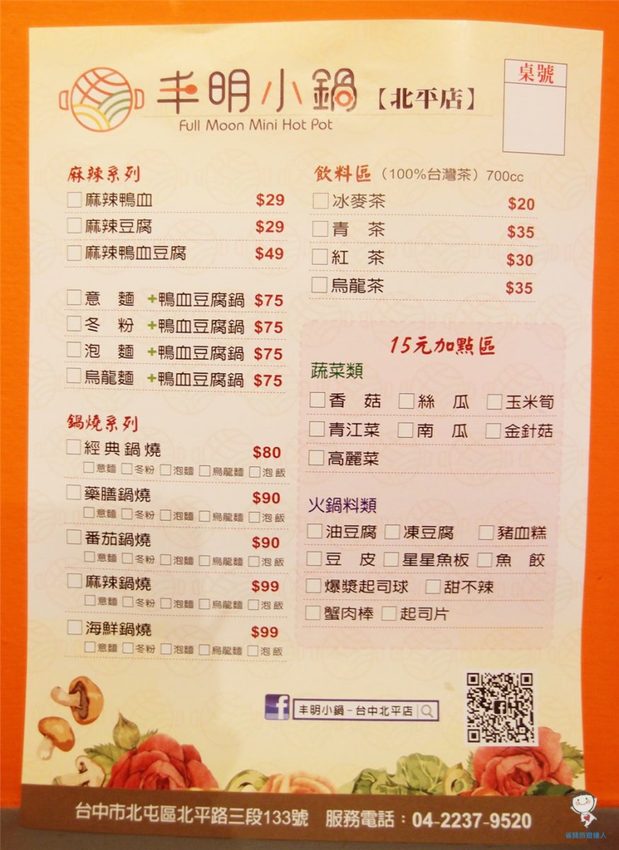 丰明小鍋【北平店】
Full Moon Mini Hot Pot
桌號
麻辣系列
麻辣鴨血 $29
麻辣豆腐 $29
麻辣鴨血豆腐 $49
意 麵 +鴨血豆腐鍋 $75
冬 粉 +鴨血豆腐鍋 $75
泡 麵 +鴨血豆腐鍋 $75
烏龍麵 +鴨血豆腐鍋 $75
鍋燒系列
經典鍋燒 $80
意麵 冬粉 泡麵 烏龍麵 泡飯
藥膳鍋燒 $90
意麵 冬粉 泡麵 烏龍麵 泡飯
番茄鍋燒 $90
意麵 冬粉 泡麵 烏龍麵 泡飯
麻辣鍋燒 $99
意麵 冬粉 泡麵 烏龍麵 泡飯
海鮮鍋燒 $99
意麵 冬粉 泡麵 烏龍麵 泡飯
飲料區(100%台灣茶)700cc
冰麥茶 $20
青 茶 $35
紅 茶 $30
烏龍茶 $35
15元加點區
蔬菜類
香 菇 絲 瓜 玉米筍
青江菜 南 瓜 金針菇
高麗菜
火鍋料類
油豆腐 凍豆腐 豬血糕
豆 皮 星星魚板 魚 餃
爆漿起司球 甜不辣
蟹肉棒 起司片
f 丰明小鍋-台中北平店
台中市北屯區北平路三段133號 服務電話:04-2237-9520
省錢旅遊達人